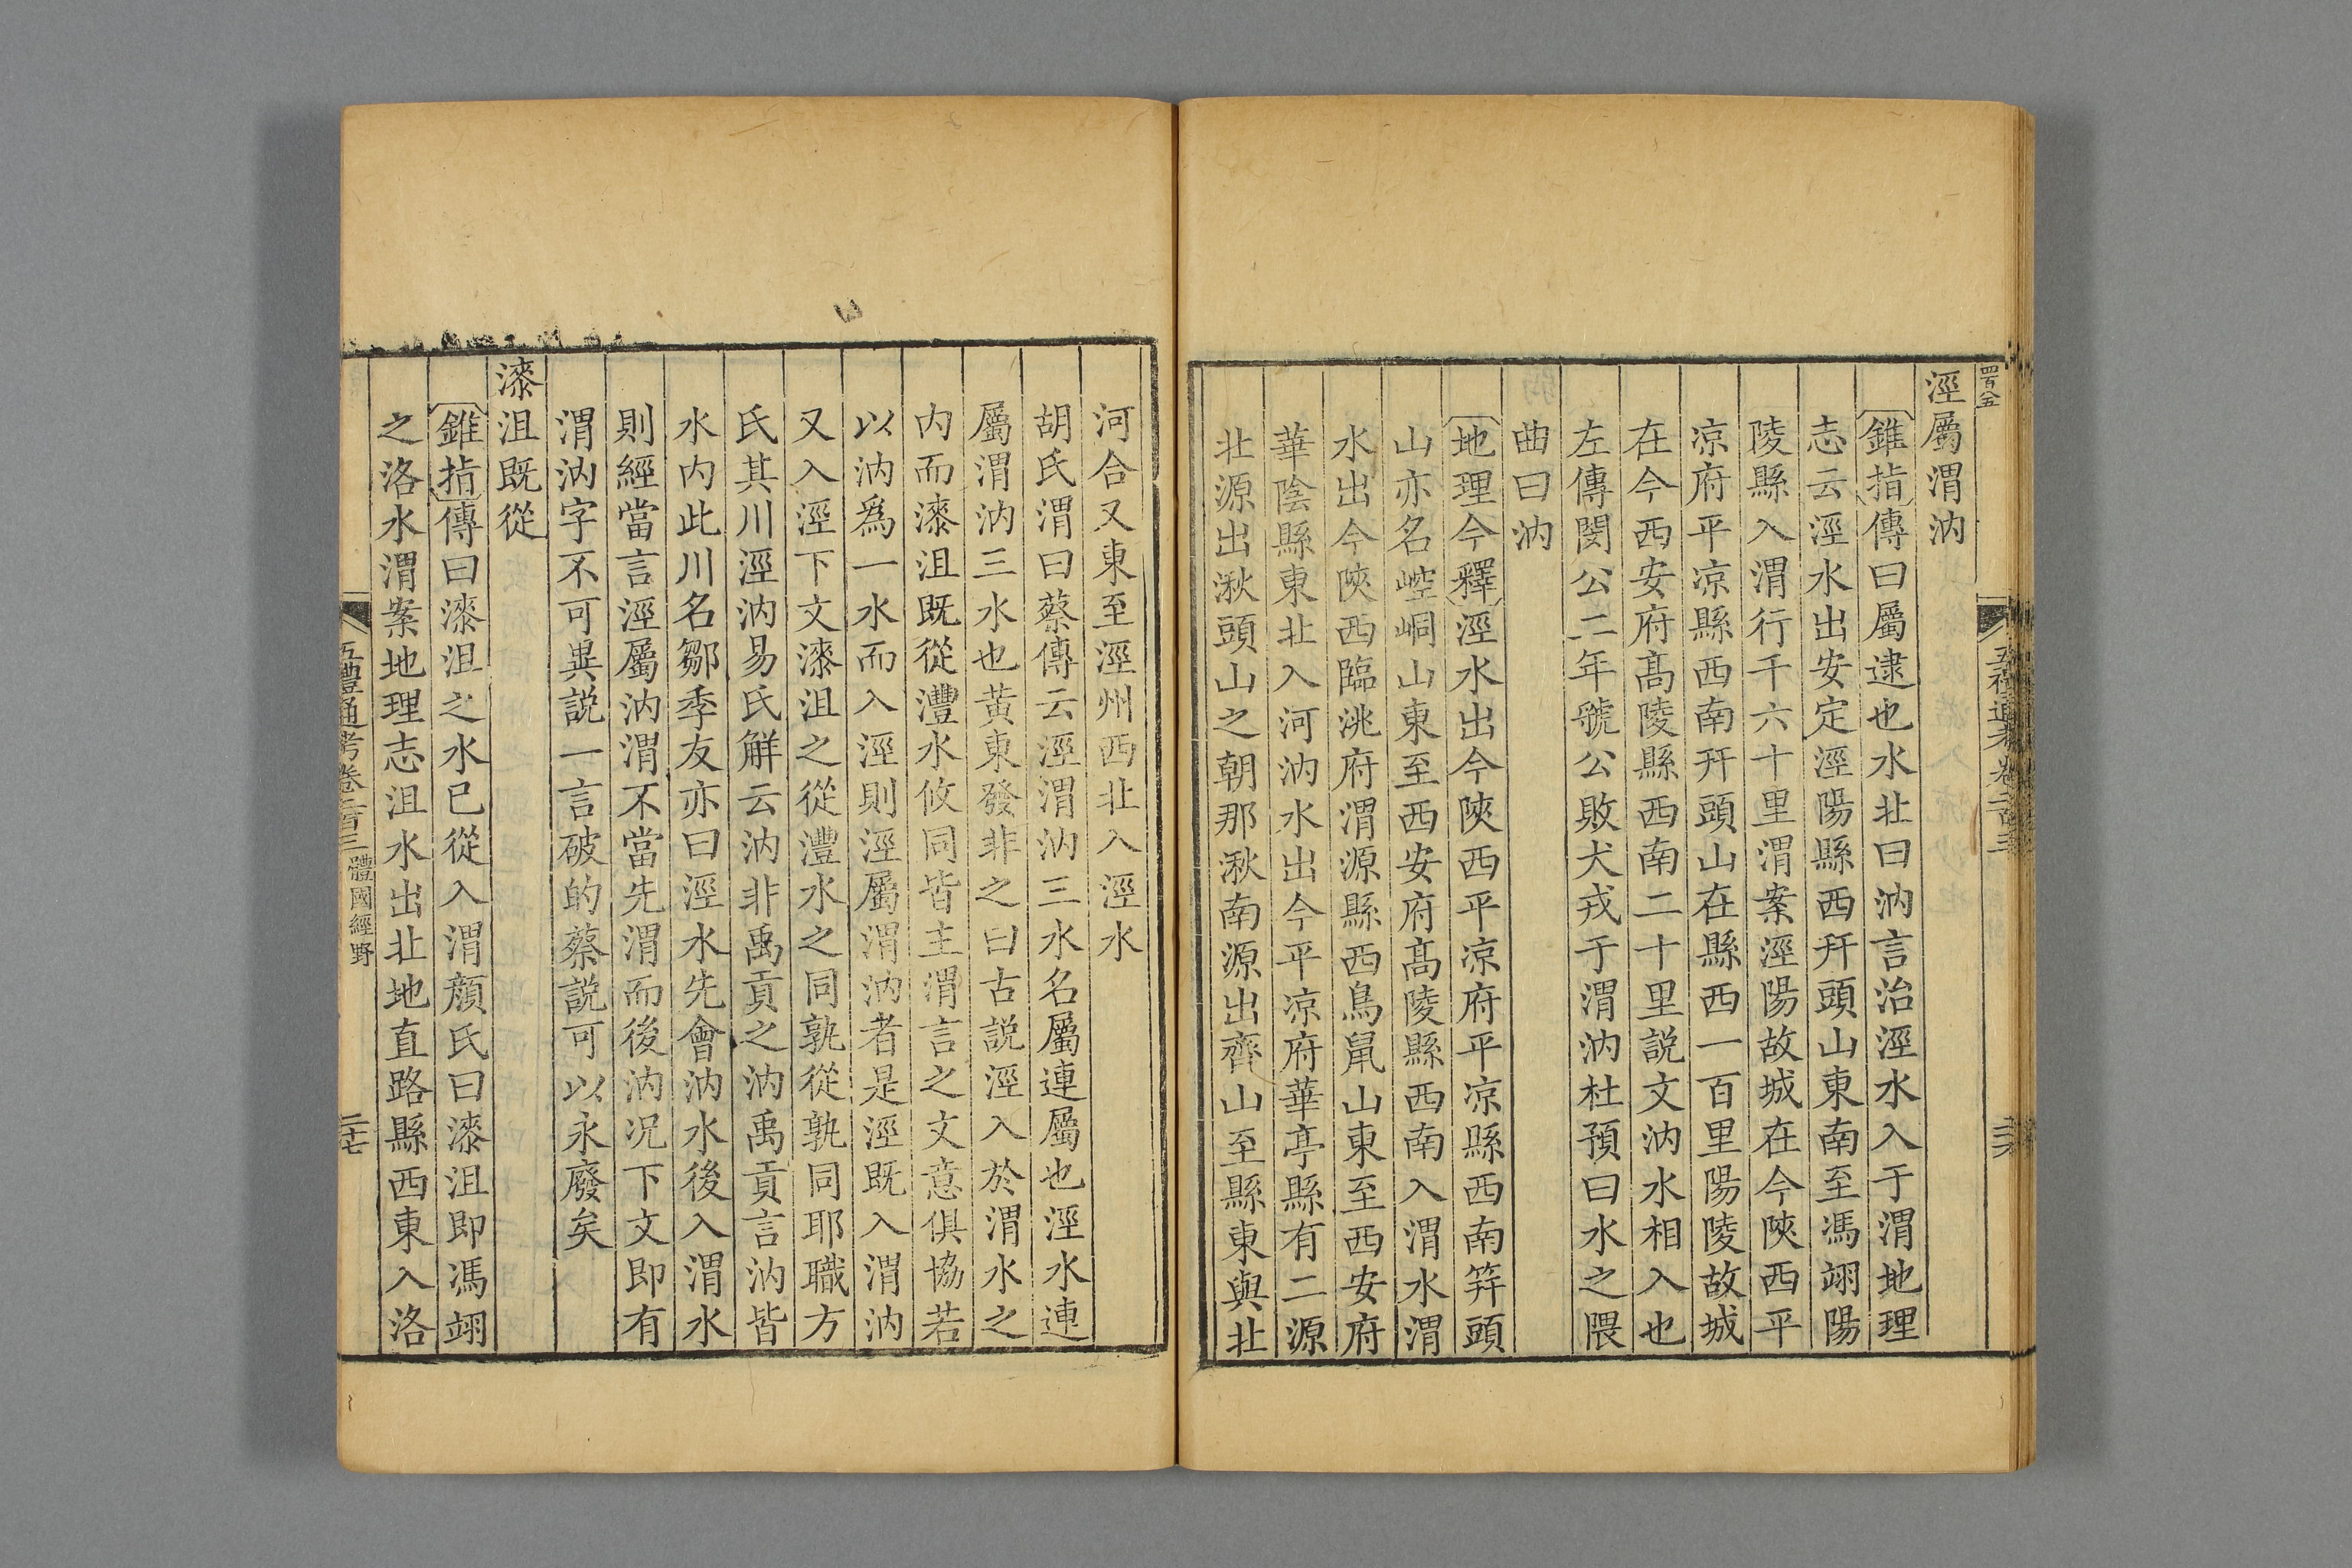 四百八五
涇屬渭汭
錐指傳曰屬逮也水北曰汭言治涇水入于渭地理
志云涇水出安定涇陽縣西幵頭山東南至馮翊陽
陵縣入渭行千六十里渭案涇陽故城在今陝西平
凉府平凉縣西南幵頭山在縣西一百里陽陵故城
在今西安府髙陵縣西南二十里説文汭水相入也
左傳閔公二年虢公敗犬戎于渭汭杜預曰水之隈
曲曰汭
地理今釋涇水出今陝西平凉府平凉縣西南筓頭
山亦名崆峒山東至西安府髙陵縣西南入渭水渭
水出今陝西臨洮府渭源縣西鳥鼠山東至西安府
華陰縣東北入河汭水出今平凉府華亭縣有二源
北源出湫頭山之朝那湫南源出齊山至縣東與北
河合又東至涇州西北入涇水
胡氏渭曰蔡傳云涇渭汭三水名屬連屬也涇水連
屬渭汭三水也黃東發非之曰古説涇入於渭水之
内而漆沮既從灃水攸同皆主渭言之文意俱協若
以汭爲一水而入涇則涇屬渭汭者是涇既入渭汭
又入涇下文漆沮之從灃水之同孰從孰同耶職方
氏其川涇汭易氏解云汭非禹貢之汭禹貢言汭皆
水内此川名鄒季友亦曰涇水先會汭水後入渭水
則經當言涇屬汭渭不當先渭而後汭况下文即有
渭汭字不可異説一言破的蔡説可以永廢矣
漆沮既從
錐指傳曰漆沮之水已從入渭顏氏曰漆沮即馮翊
之洛水渭案地理志沮水出北地直路縣西東入洛
五禮通考卷二百三 體國經野 二十七